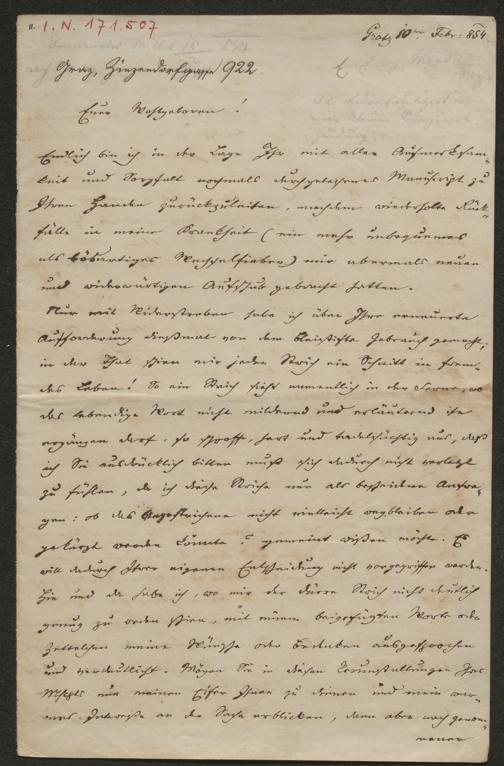 I. N. 171.507
Gratz 10ten Febr: 854
Graz, Zinzendorfgasse 922.
Euer Wohlgeboren!
Endlich bin ich in der Lage Ihr mit aller Aufmerksam-
keit und Sorgfalt nochmals durchgelesenes Manuscript zu
Ihren Handen zurückzuleiten, nachdem wiederholte Rück-
fälle in meine Krankheit (ein mehr unbequemes
als bösartiges Wechselfieber) mir abermals neuen
und widerwärtigen Aufschub gebracht hatten.
Nur mit Widerstreben habe ich über Ihre erneuerte
Aufforderung dießmal von dem Bleistifte Gebrauch gemacht;
in der That schien mir jeder Strich ein Schnitt in frem-
des Leben! So ein Strich sieht namentlich in der Ferne, wo
das lebendige Wort nicht mildernd und erläuternd ihn
ergänzen darf, so schroff, hart und tadelsüchtig aus, daß
ich Sie ausdrücklich bitten muß sich dadurch nicht verletzt
zu fühlen, da ich diese Striche nur als bescheidene Anfra-
gen: ob das Angestrichene nicht vielleicht wegbleiben oder
gekürzt werden könnte? gemeint wissen möchte. Es
will dadurch Ihrer eigenen Entscheidung nicht vorgegriffen werden.
Hie und da habe ich, wo mir der dürre Strich nicht deutlich
genug zu reden schien, mit einem beigefügten Worte oder
Zettelchen meine Wünsche oder Bedenken ausgesprochen
und verdeutlicht. Mögen Sie in diesen Verunstaltungen Ihres
Mscpts nur meinen Eifer Ihnen zu dienen und mein war-
mes Interesse an der Sache erblicken, dann aber nach genom-
mener